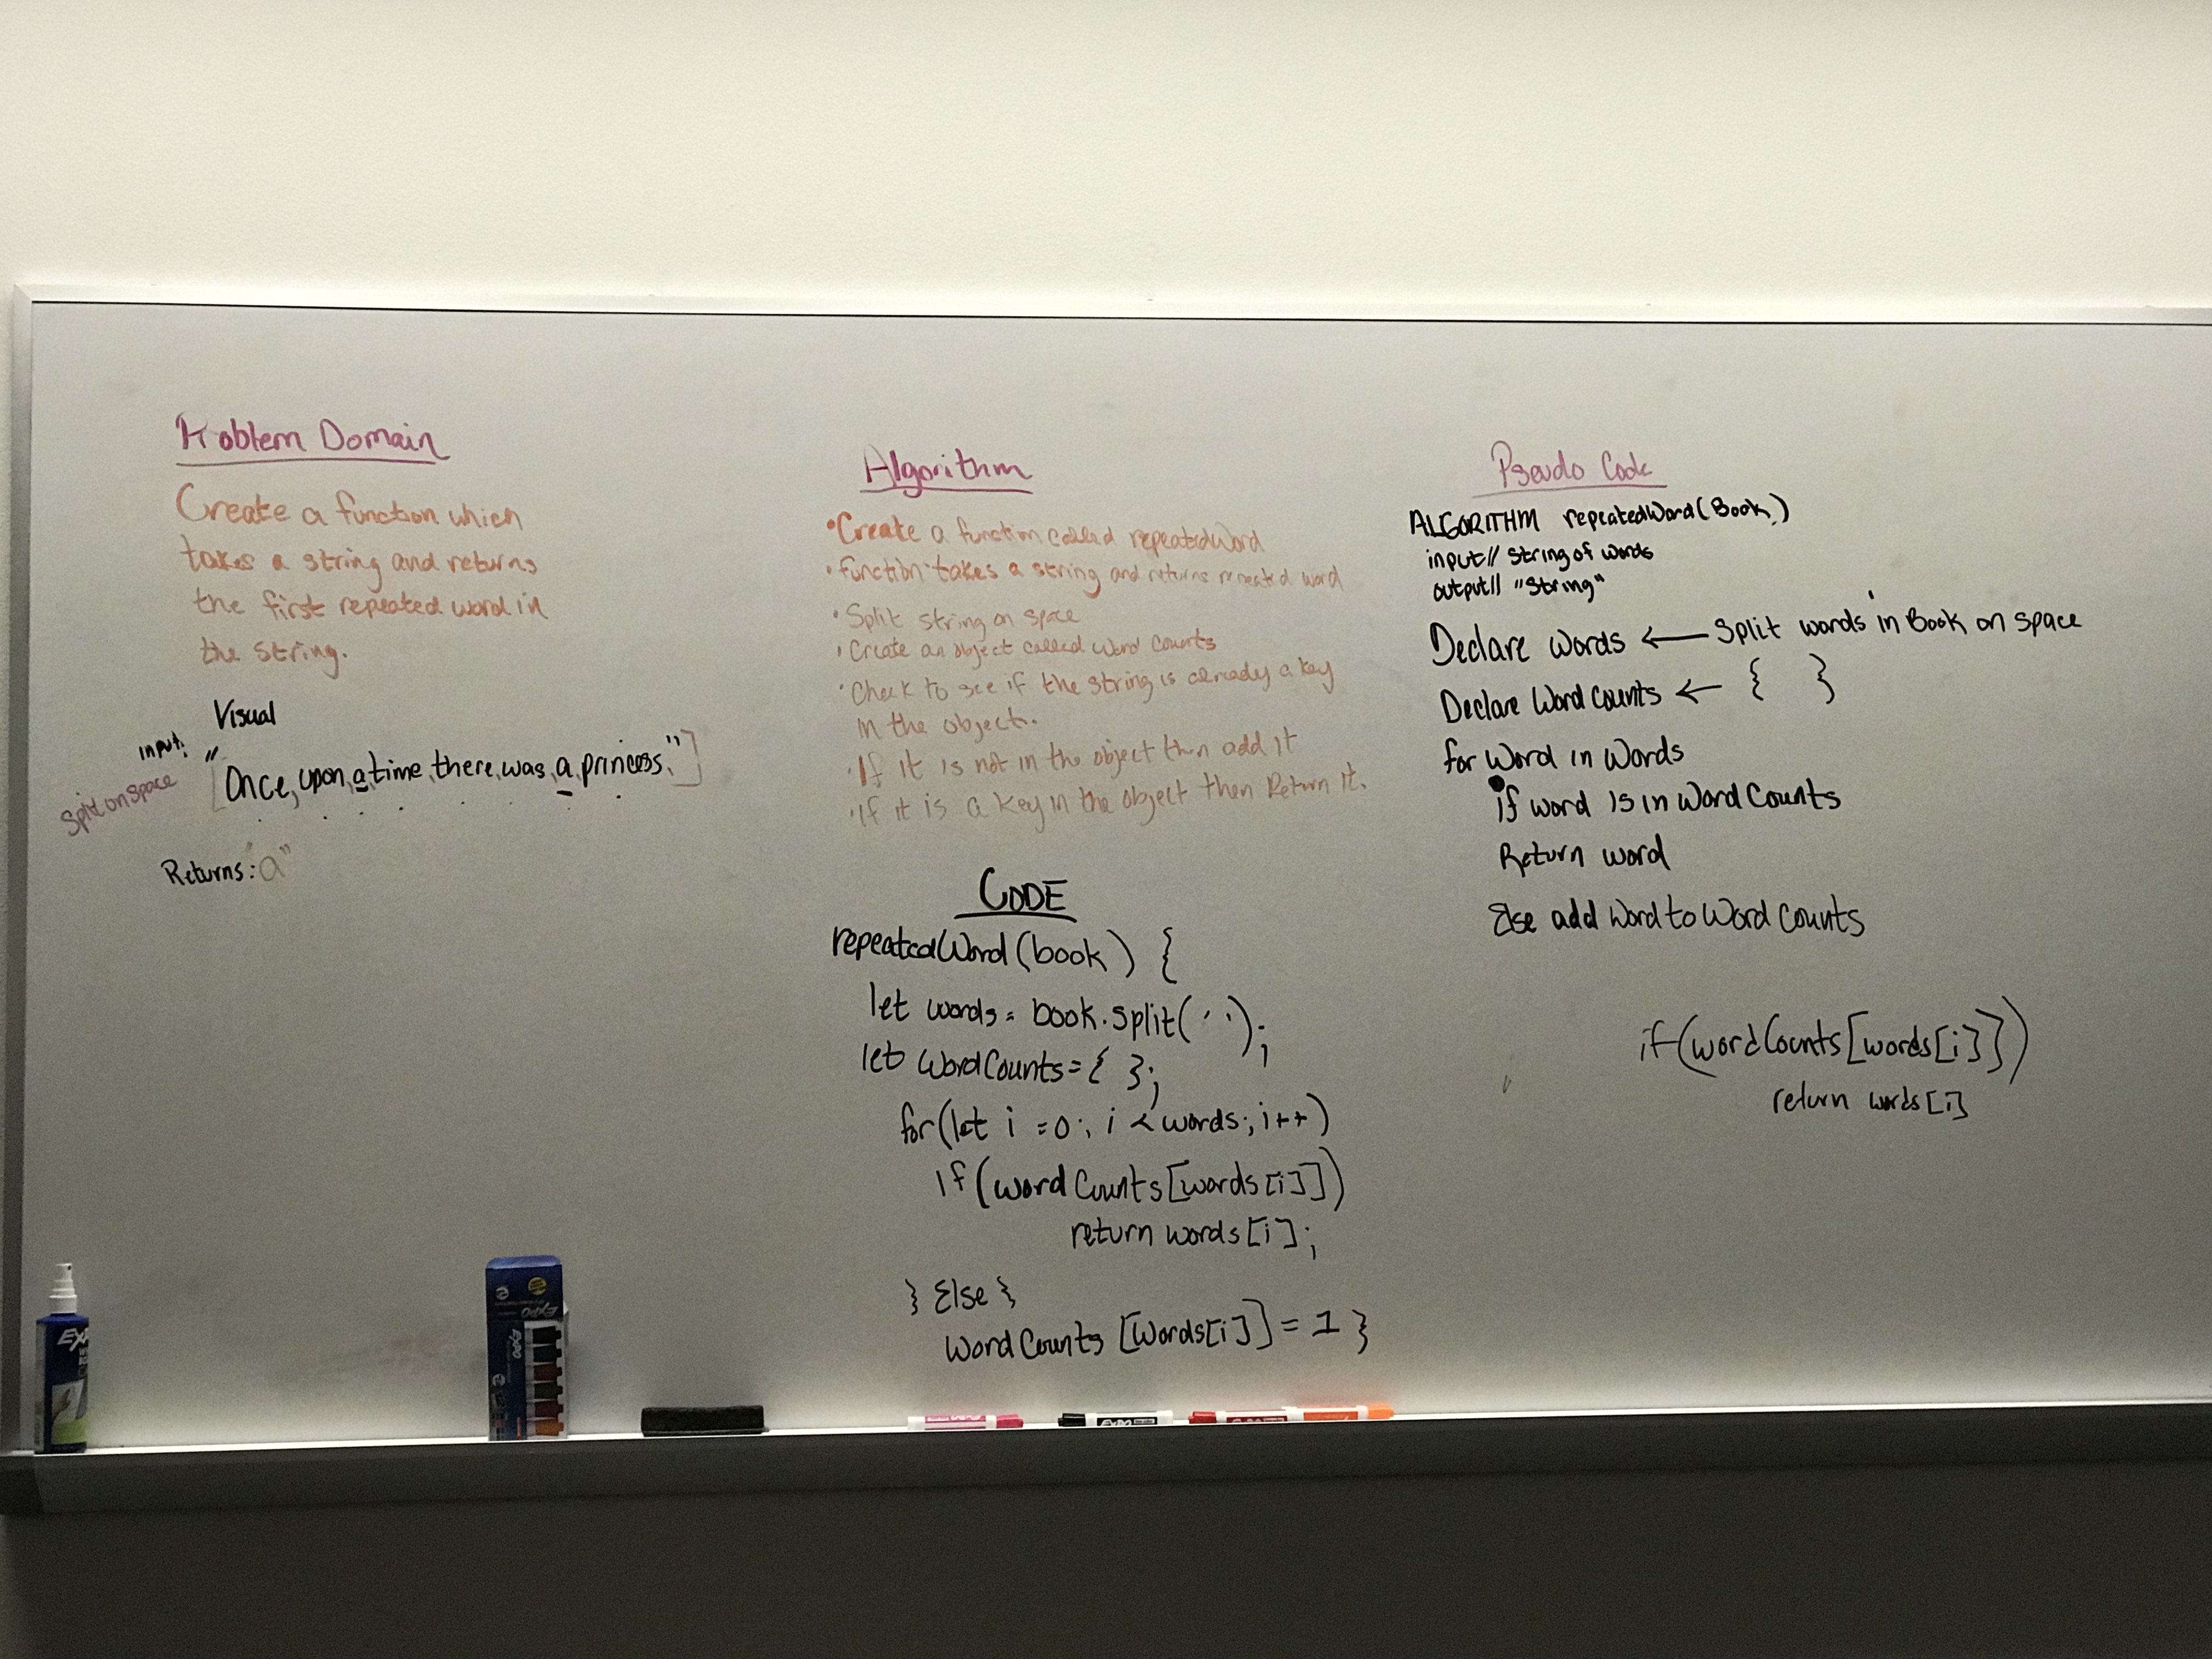 Problem Domain
Create a function which
takes a string and returns
the first repeated word in
the string.
Visual
input:
"Once, upon, a time, there, was, a, princess."
Split on space
Returns: "a"
Algorithm
• Create a function called repeatedWord
• function takes a string and returns repeated word
• Split string on space
• Create an object called Word Counts
• Check to see if the string is already a key
in the object.
• If it is not in the object then add it
• If it is a key in the object then Return it.
CODE
repeatedWord(book) {
let words = book.split(' ');
let WordCounts = { };
for(let i = 0; i < words; i++)
if(wordCounts[words[i]])
return words[i];
} Else }
WordCounts [Words[i]] = 1 }
Pseudo Code
ALGORITHM repeatedWord(Book)
input// String of words
output// "String"
Declare words ← Split words in Book on space
Declare WordCounts ← { }
for Word in Words
If word is in WordCounts
Return word
Else add Word to Word Counts
if(wordCounts[words[i]])
return words[i]
EXPO
EXPO
EXPO